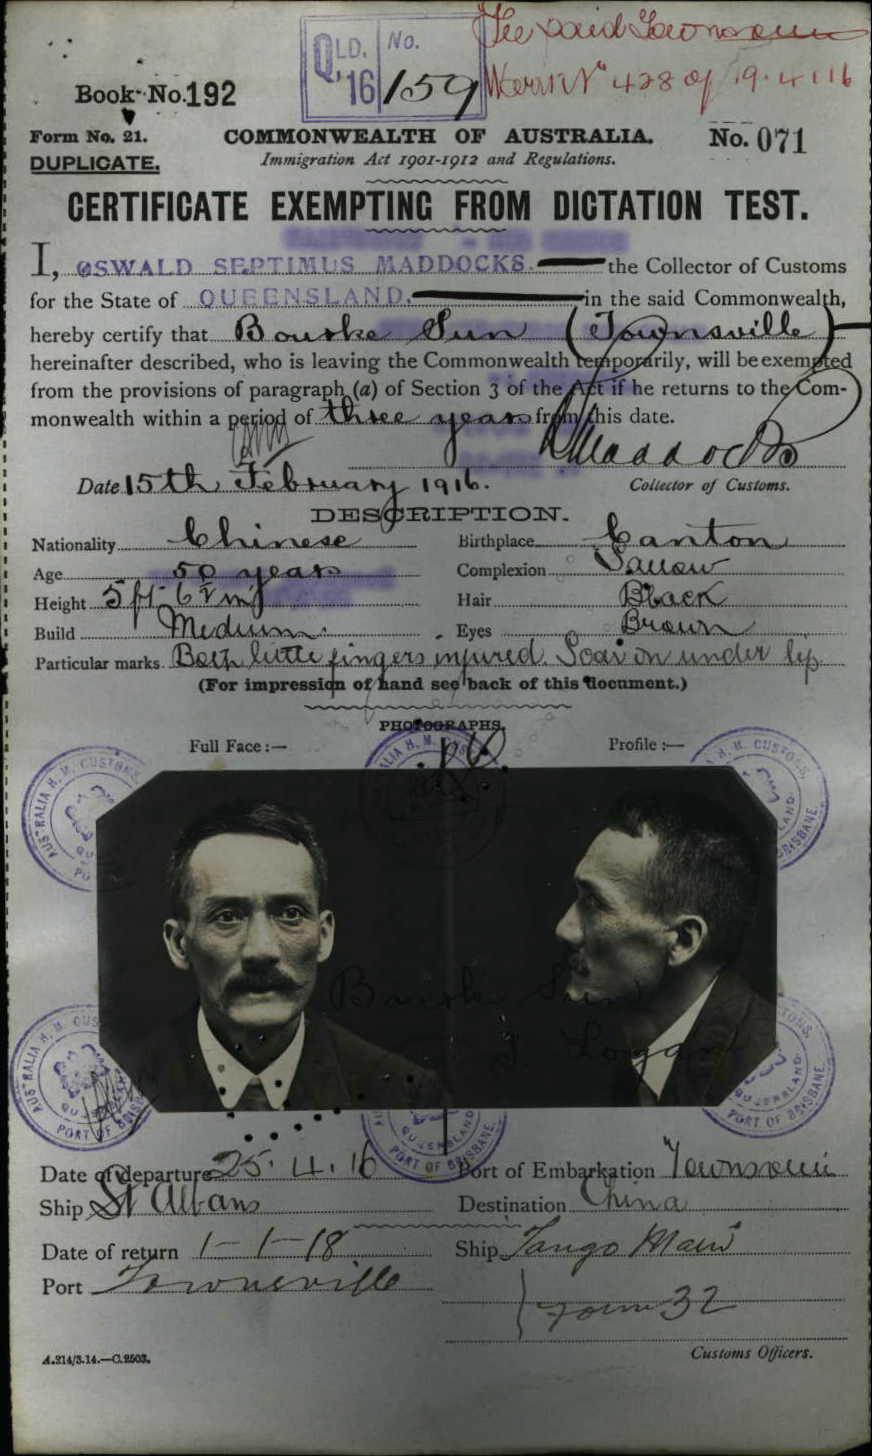 The said Townsville
QLD. No.
'16 159
428 of 19.4.16
Book No. 192
Form No. 21. COMMONWEALTH OF AUSTRALIA. No. 071
DUPLICATE. Immigration Act 1901-1912 and Regulations.
CERTIFICATE EXEMPTING FROM DICTATION TEST.
I, OSWALD SEPTIMUS MADDOCKS. the Collector of Customs
for the State of QUEENSLAND. in the said Commonwealth,
hereby certify that Bourke Sun (Townsville)
hereinafter described, who is leaving the Commonwealth temporarily, will be exempted
from the provisions of paragraph (a) of Section 3 of the Act if he returns to the Com-
monwealth within a period of three years from this date.
Maddocks
Date 15th February 1916. Collector of Customs.
DESCRIPTION.
Nationality Chinese Birthplace Canton
Age 50 years Complexion Sallow
Height 5 ft 6½ in Hair Black
Build Medium. Eyes Brown
Particular marks. Both little fingers injured. Scar on under lip.
(For impression of hand see back of this document.)
PHOTOGRAPHS.
Full Face:— Profile:—
AUSTRALIA H. M. CUSTOMS. QUEENSLAND. PORT OF BRISBANE.
Bourke Sun
Date of departure 25.4.16 Port of Embarkation Townsville
Ship St Albans Destination China
Date of return 1-1-18 Ship Tango Maru
Port Townsville
Form 32
A.214/3.14.—C.2503. Customs Officers.